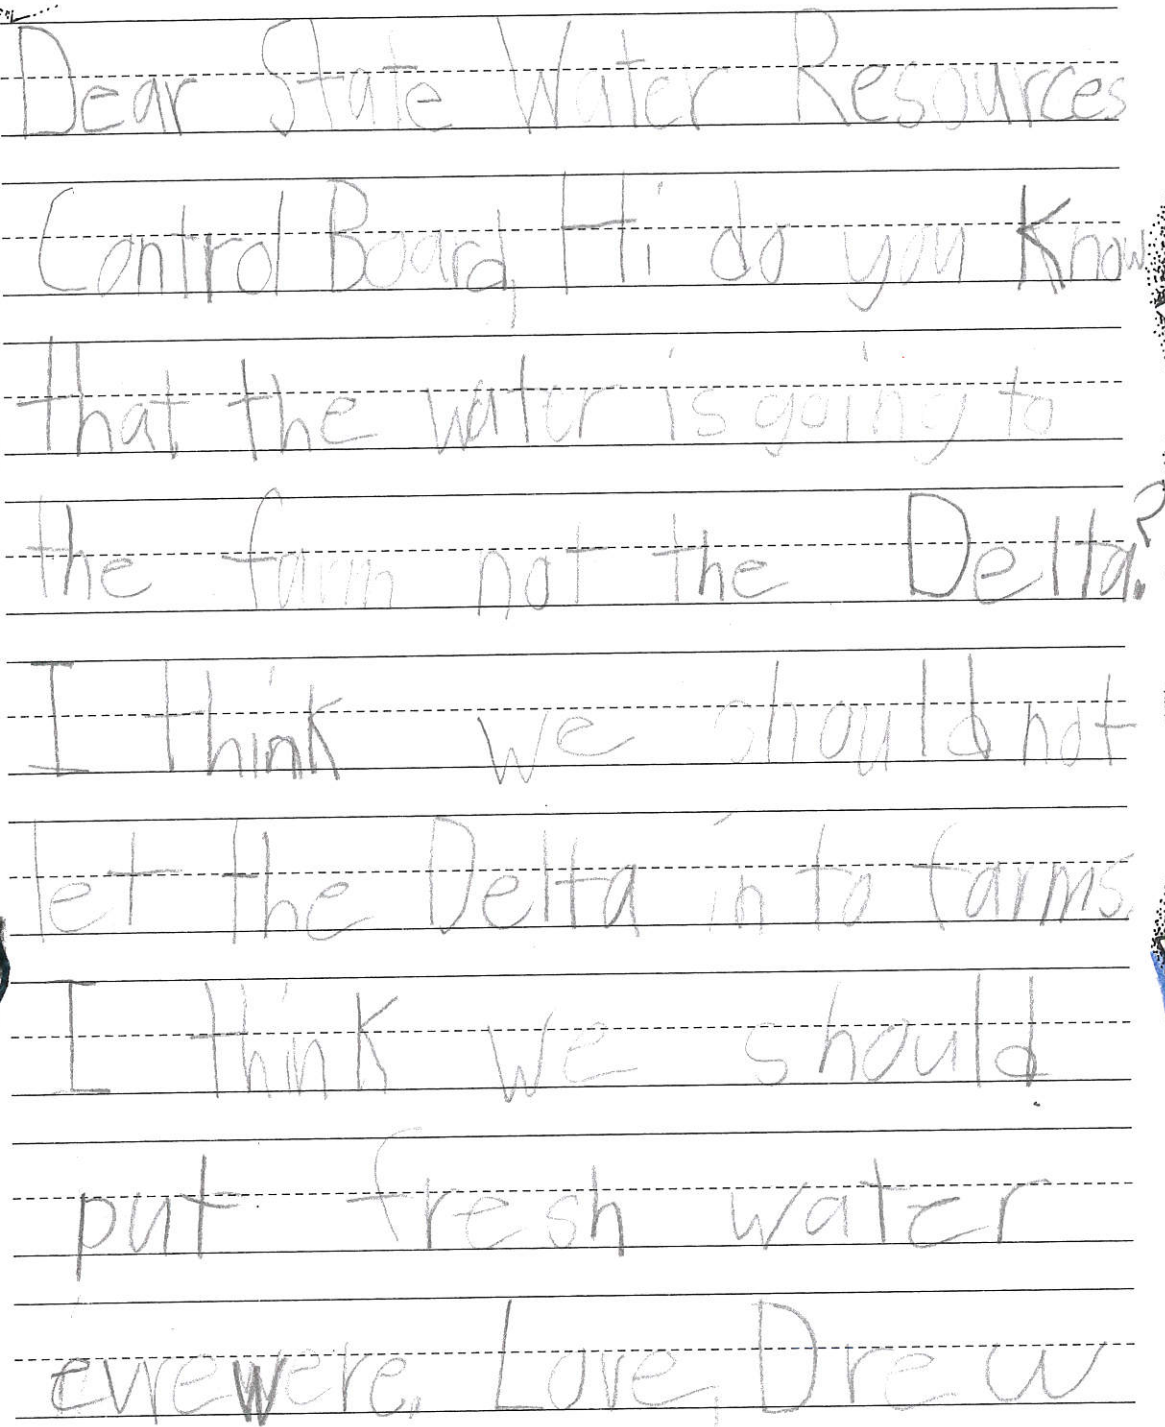 Dear State Water Resources
Control Board, Hi do you Know
that the water is going to
the farm not the Delta?
I think we should not
let the Delta in to farms.
I think we should
put fresh water
evrewere. Love, Drew